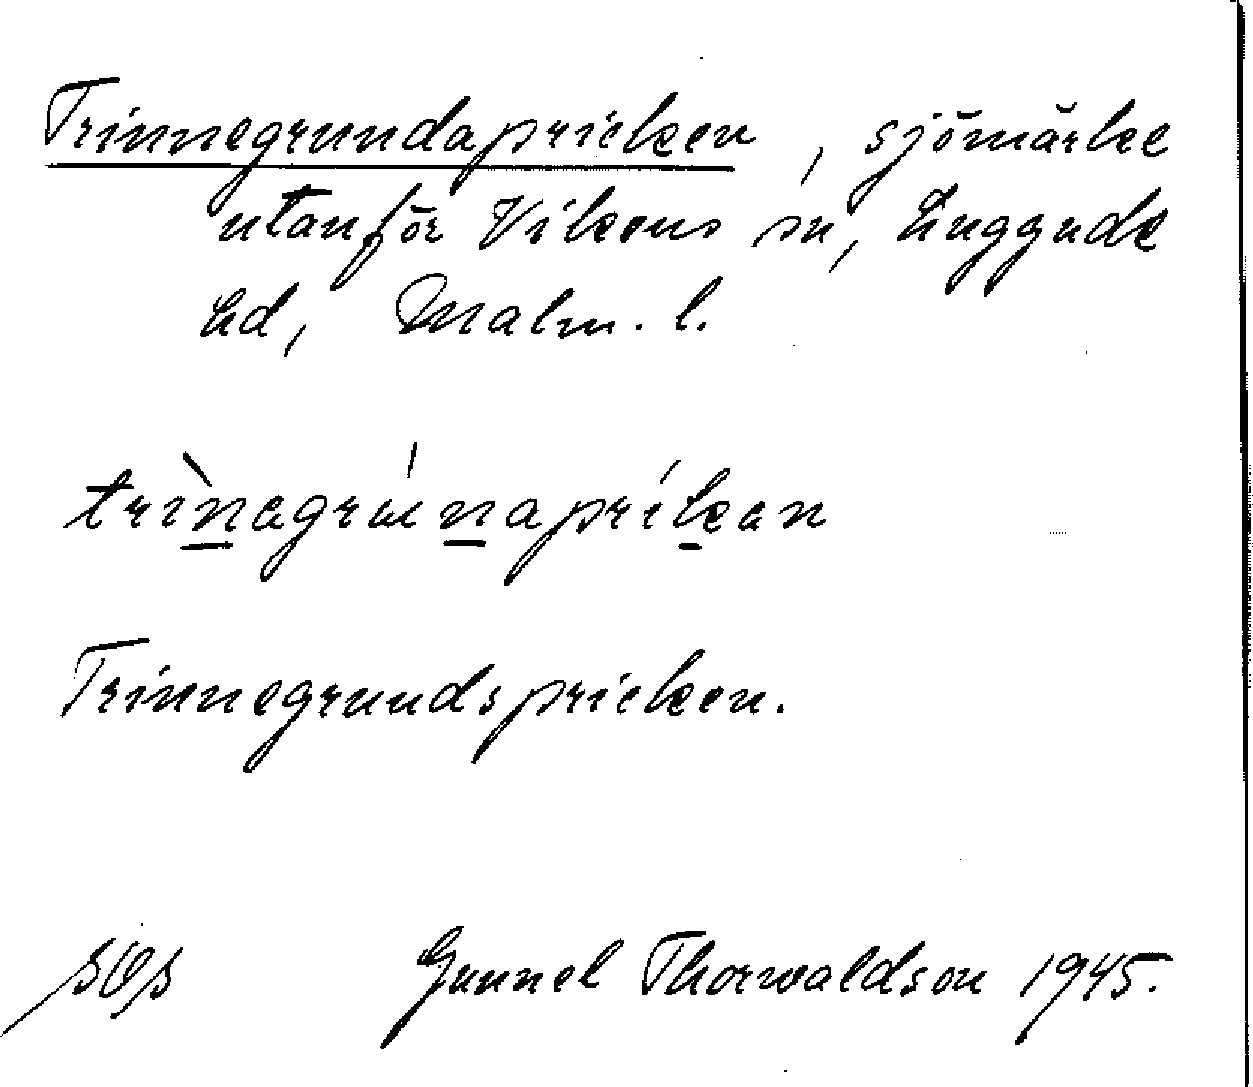 Trinnegrundapricken, sjömärke
utanför Vikens sn, Luggude
hd, Malm. l.
trìnagrúnapríkan
Trinnegrundspricken.
Gunnel Thorwaldson 1945.